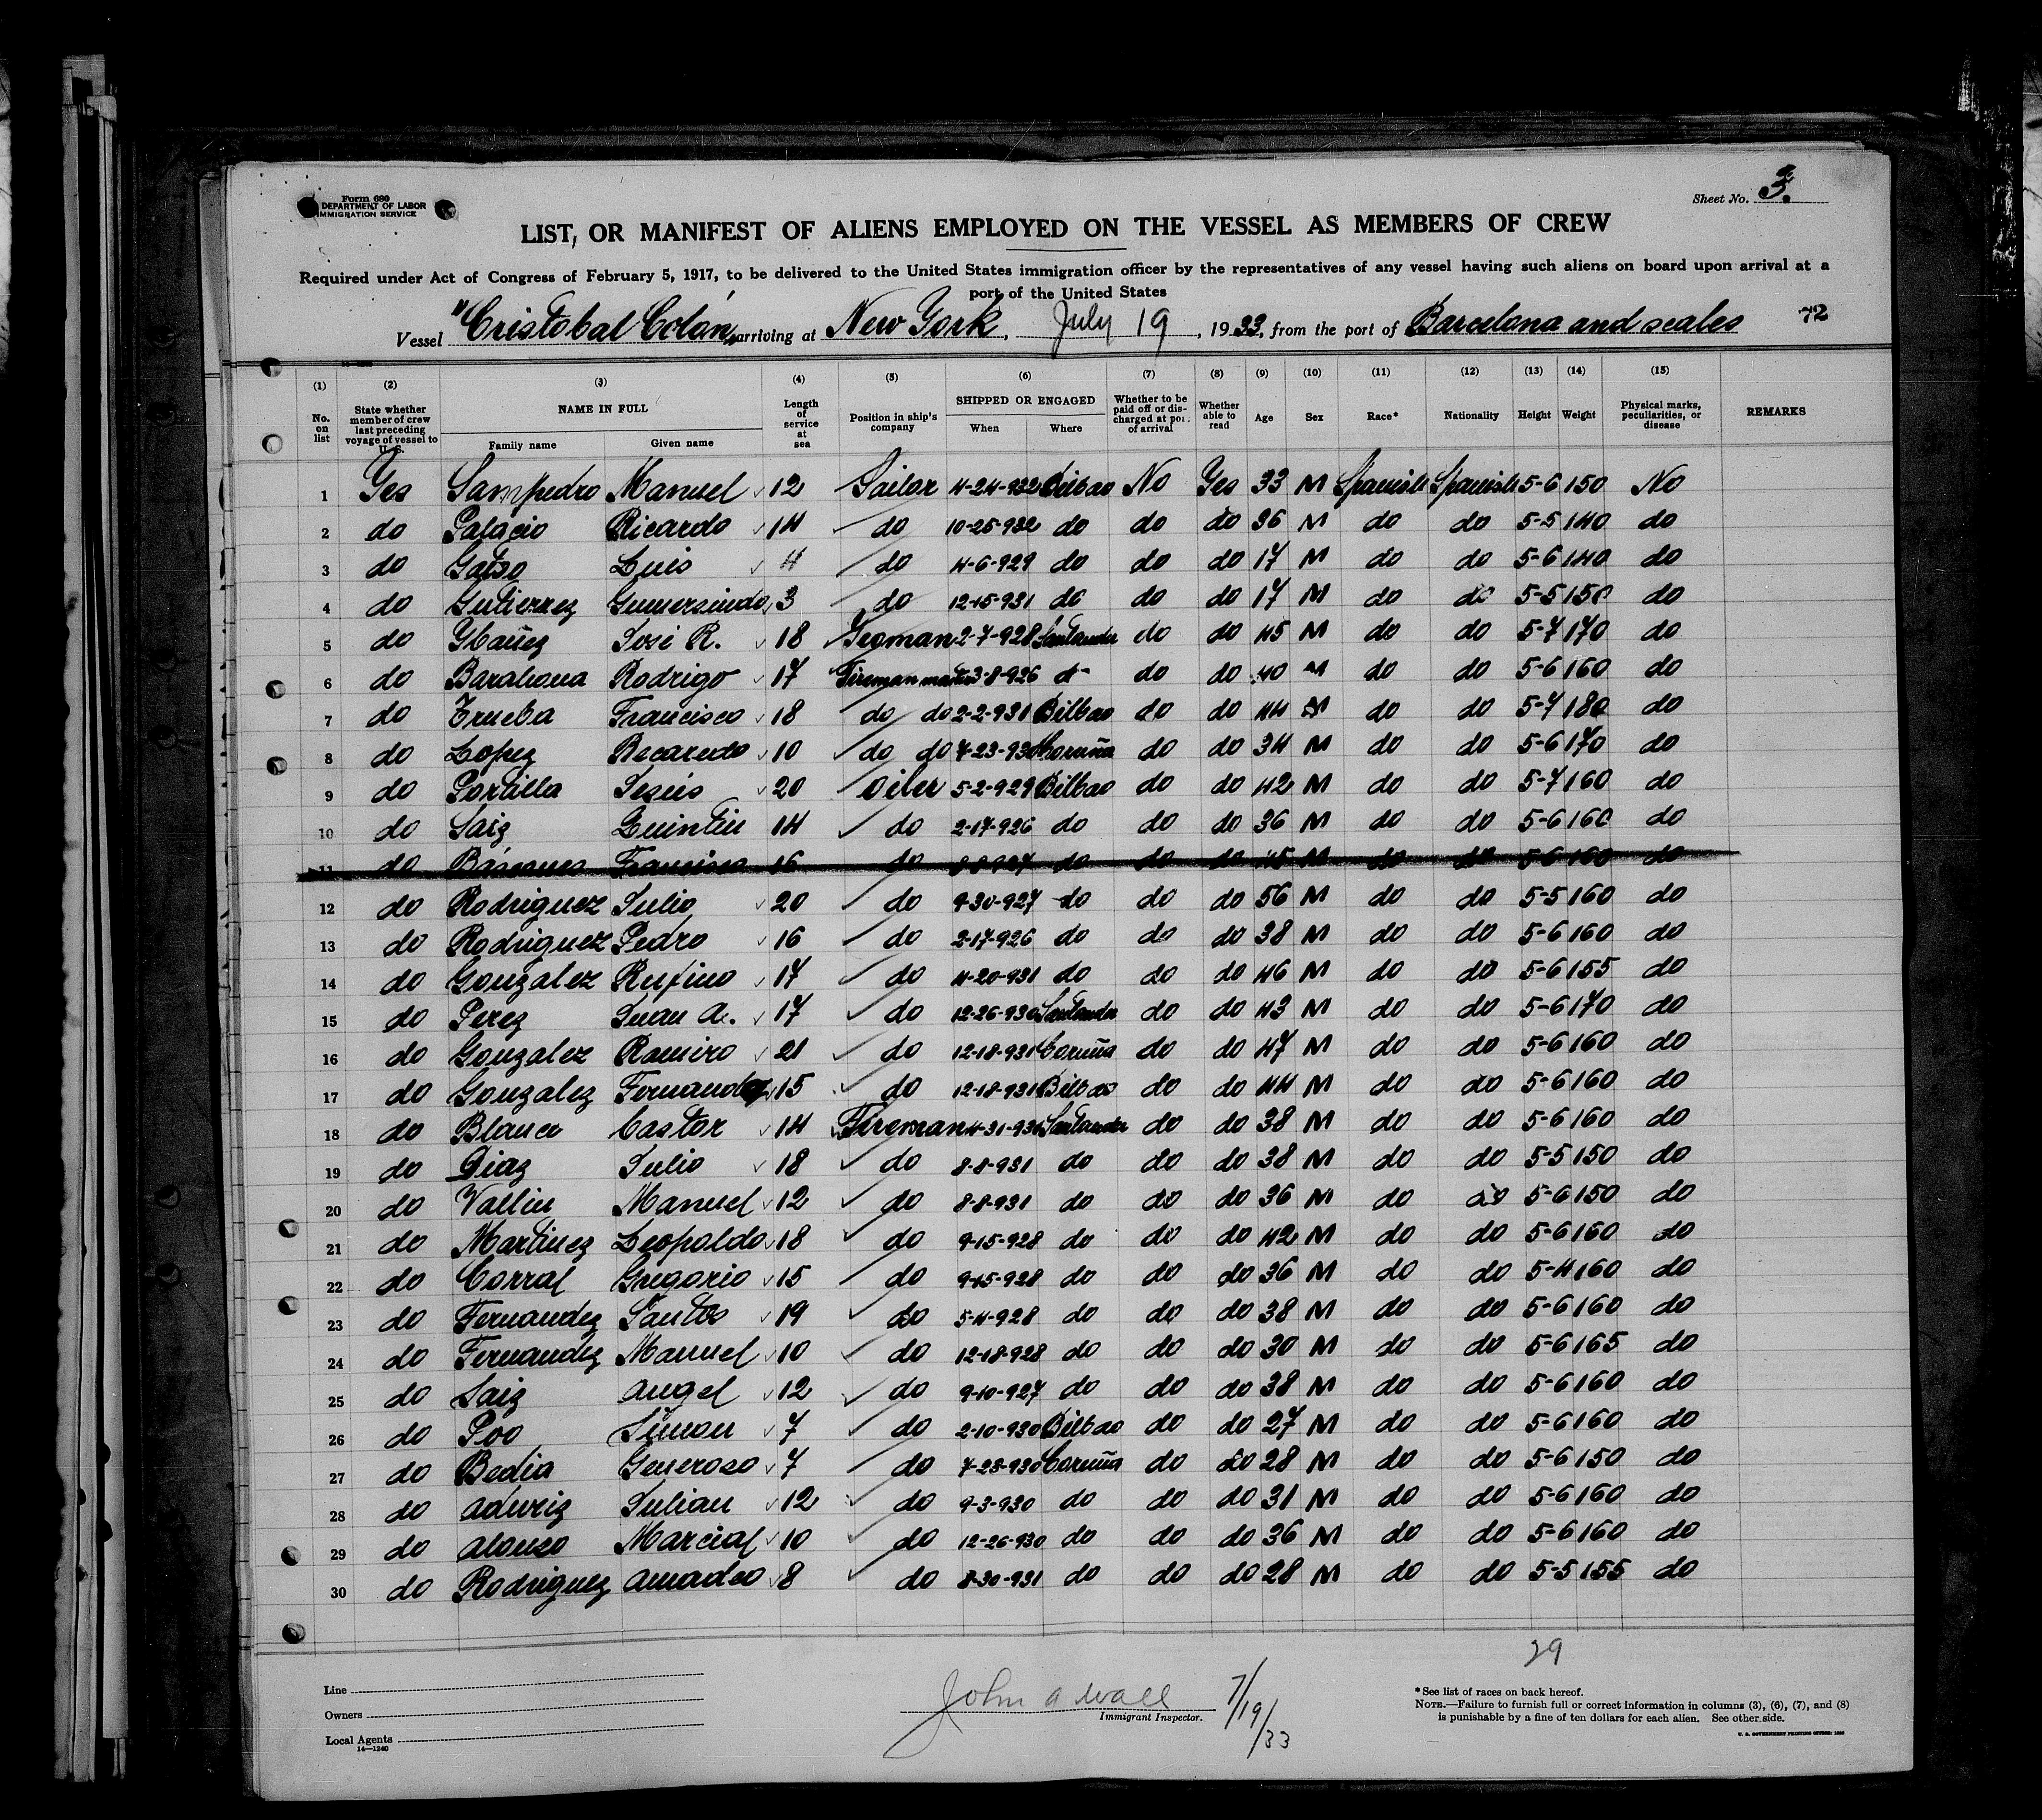 Form 680
DEPARTMENT OF LABOR
IMMIGRATION SERVICE
Sheet No. 3.
LIST, OR MANIFEST OF ALIENS EMPLOYED ON THE VESSEL AS MEMBERS OF CREW
Required under Act of Congress of February 5, 1917, to be delivered to the United States immigration officer by the representatives of any vessel having such aliens on board upon arrival at a
port of the United States
Vessel "Cristobal Colón" arriving at New York, July 19, 1933, from the port of Barcelona and scales 72
(1) (2) (3) (4) (5) (6) (7) (8) (9) (10) (11) (12) (13) (14) (15)
No. on list State whether member of crew last preceding voyage of vessel to U. S. NAME IN FULL Family name Given name Length of service at sea Position in ship's company SHIPPED OR ENGAGED When Where Whether to be paid off or discharged at port of arrival Whether able to read Age Sex Race* Nationality Height Weight Physical marks, peculiarities, or disease REMARKS
1 Yes Sampedro Manuel 12 Sailor 4-24-932 Bilbao No Yes 33 M Spanish Spanish 5-6 150 No
2 do Palacio Ricardo 14 do 10-25-932 do do do 36 M do do 5-5 140 do
3 do Luis 4 do 4-6-929 do do do 17 M do do 5-6 140 do
4 do Gutierrez Gumersindo 3 do 12-15-931 do do do 17 M do do 5-5 150 do
5 do Ybañez José R. 18 Yeoman 2-7-928 Santander do do 45 M do do 5-7 170 do
6 do Barahona Rodrigo 17 Fireman 3-8-926 do do do 40 M do do 5-6 160 do
7 do Trueba Francisco 18 do do 2-2-931 Bilbao do do 44 M do do 5-7 180 do
8 do Lopez Recaredo 10 do do 7-23-930 Coruña do do 34 M do do 5-6 170 do
9 do Portilla Jesús 20 Oiler 5-2-929 Bilbao do do 42 M do do 5-7 160 do
10 do Saiz Quintin 14 do 2-17-926 do do do 36 M do do 5-6 160 do
11 do Francisco 16 do 8-8-927 do do do 45 M do do 5-6 160 do
12 do Rodriguez Julio 20 do 9-30-927 do do do 56 M do do 5-5 160 do
13 do Rodriguez Pedro 16 do 2-17-926 do do do 38 M do do 5-6 160 do
14 do Gonzalez Rufino 17 do 4-20-931 do do do 46 M do do 5-6 155 do
15 do Perez Juan A. 17 do 12-26-930 Santander do do 43 M do do 5-6 170 do
16 do Gonzalez Ramiro 21 do 12-18-931 Coruña do do 47 M do do 5-6 160 do
17 do Gonzalez 15 do 12-18-931 Bilbao do do 44 M do do 5-6 160 do
18 do Blanco Castor 14 Fireman Santander do do 38 M do do 5-6 160 do
19 do Diaz Julio 18 do 8-8-931 do do do 38 M do do 5-5 150 do
20 do Vallin Manuel 12 do 8-8-931 do do do 36 M do do 5-6 150 do
21 do Martinez Leopoldo 18 do 9-15-928 do do do 42 M do do 5-6 160 do
22 do Corral Gregorio 15 do 9-15-928 do do do 36 M do do 5-4 160 do
23 do Fernandez Santos 19 do 5-4-928 do do do 38 M do do 5-6 160 do
24 do Fernandez Manuel 10 do 12-18-928 do do do 30 M do do 5-6 165 do
25 do Saiz Angel 12 do 9-10-927 do do do 38 M do do 5-6 160 do
26 do Poo Simon 7 do 2-10-930 Bilbao do do 27 M do do 5-6 160 do
27 do Bedia Generoso 7 do 7-23-930 Coruña do do 28 M do do 5-6 150 do
28 do Aduriz Julian 12 do 9-3-930 do do do 31 M do do 5-6 160 do
29 do Alonso Marcial 10 do 12-26-930 do do do 36 M do do 5-6 160 do
30 do Rodriguez Amadeo 8 do 8-30-931 do do do 28 M do do 5-5 155 do
29
Line
Owners
Local Agents
14—1240
John A Wall 7/19/33
Immigrant Inspector.
*See list of races on back hereof.
NOTE.—Failure to furnish full or correct information in columns (3), (6), (7), and (8)
is punishable by a fine of ten dollars for each alien. See other side.
U. S. GOVERNMENT PRINTING OFFICE